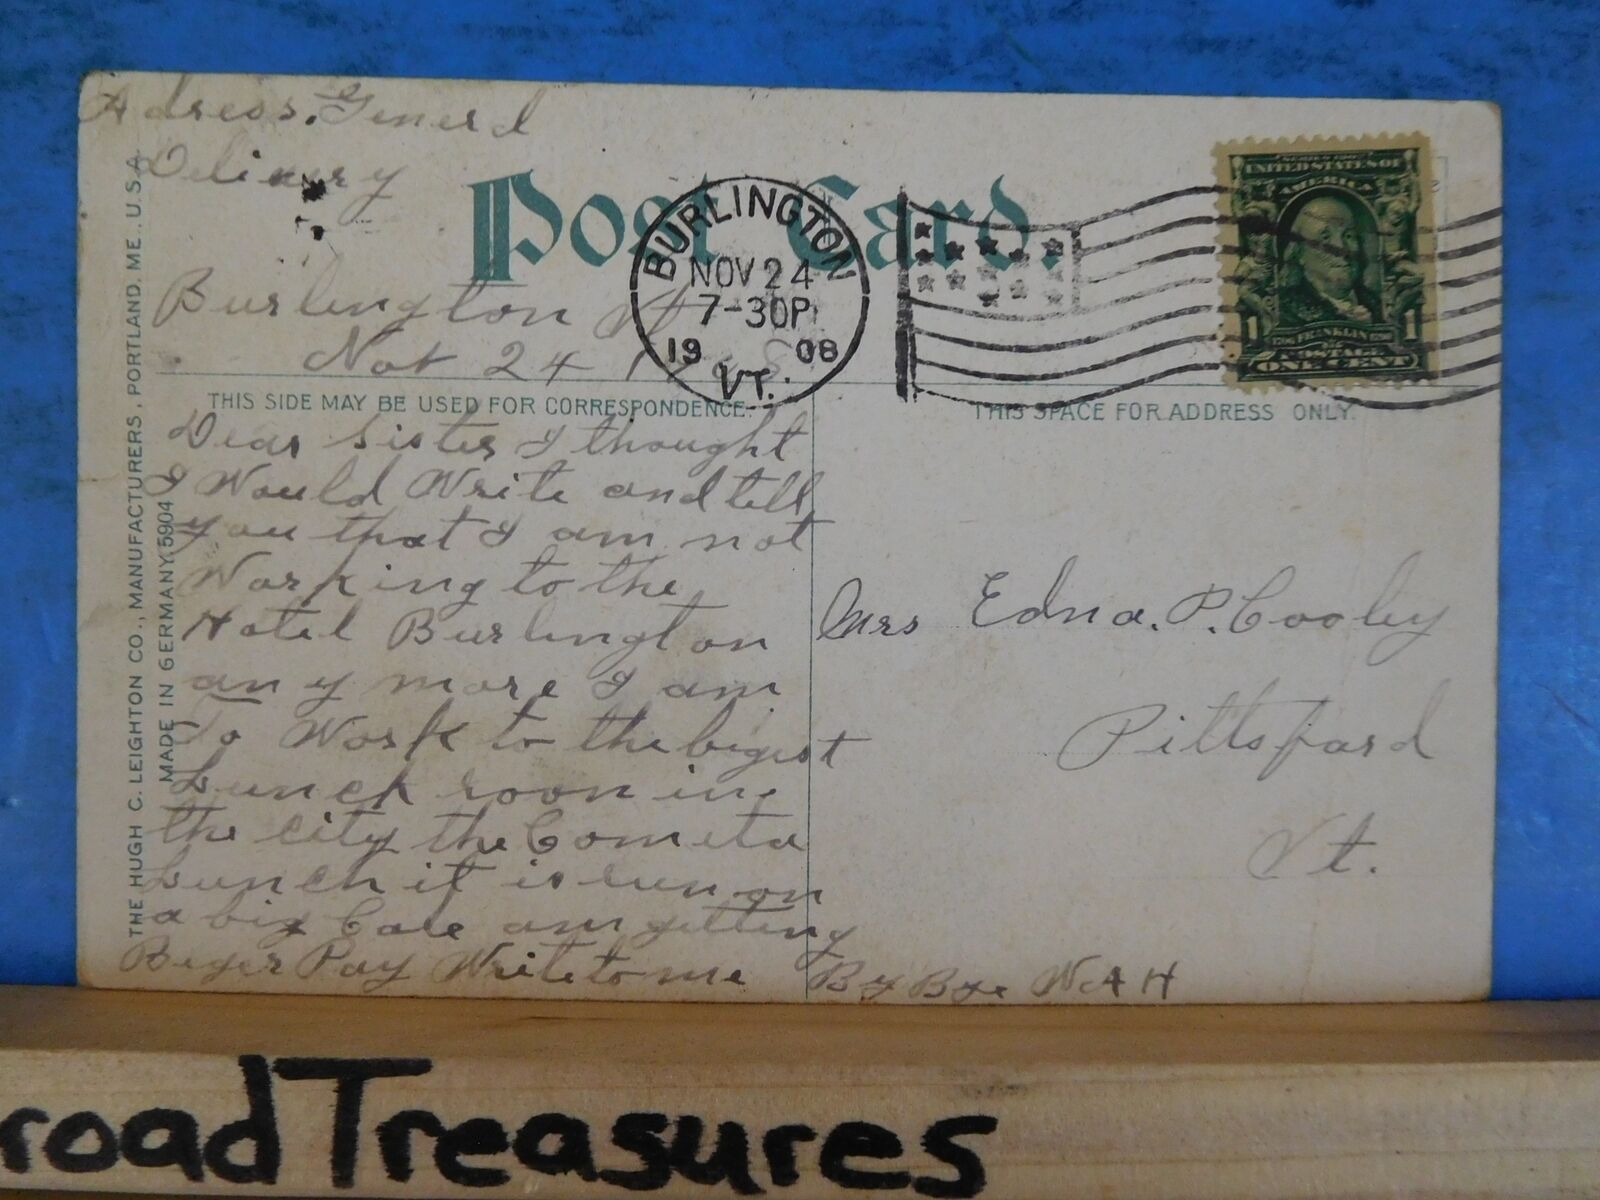 Adress. Generl
Delivery
Post Card.
BURLINGTON
NOV 24
7-30P
1908
VT.
SERIES 1902
UNITED STATES OF
AMERICA
1 FRANKLIN 1
POSTAGE
ONE CENT
Burlington Vt
Nov 24 1908
THIS SIDE MAY BE USED FOR CORRESPONDENCE.
THIS SPACE FOR ADDRESS ONLY.
Dear Sister I thought
I Would Write and tell
you that I am not
Working to the
Hotel Burlington
any more I am
To Work to the bigest
Lunch room in
the city the
Lunch it is run on
a big am getting
Biger Pay Write to me
By Bye W A H
Mrs Edna. P. Cooley
Pittsford
Vt.
THE HUGH C. LEIGHTON CO., MANUFACTURERS, PORTLAND, ME. U.S.A.
MADE IN GERMANY 5904
roadTreasures